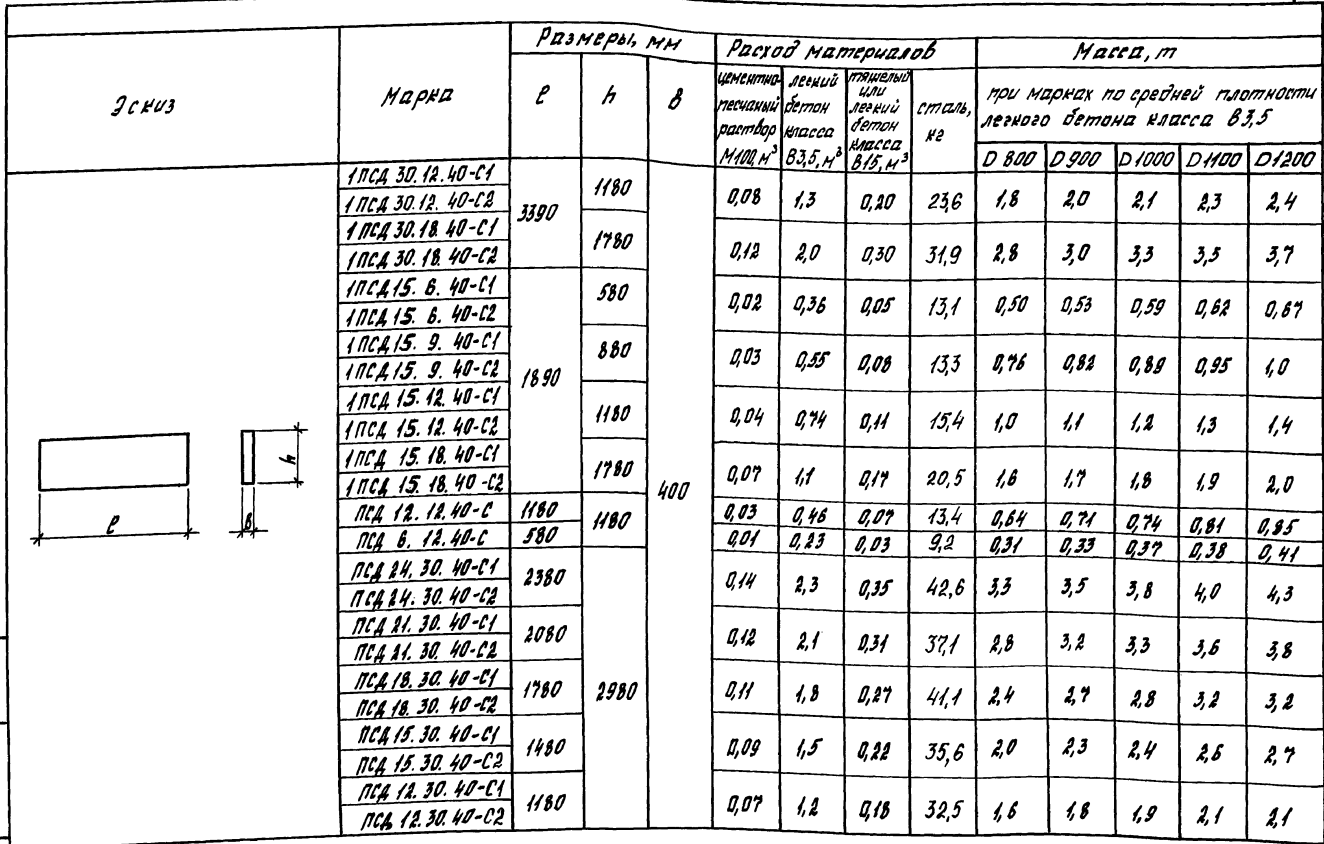 Эскиз | Марка | Размеры, мм | Расход материалов | Масса, т
l | h | в | цементно-песчаный раствор М100, м³ | легкий бетон класса В3,5, м³ | тяжелый или легкий бетон класса В15, м³ | сталь, кг | при марках по средней плотности легкого бетона класса В3,5
D 800 | D 900 | D 1000 | D 1100 | D 1200
1ПСД 30.12.40-С1
1ПСД 30.12.40-С2 | 3390 | 1180 | 400 | 0,08 | 1,3 | 0,20 | 23,6 | 1,8 | 2,0 | 2,1 | 2,3 | 2,4
1ПСД 30.18.40-С1
1ПСД 30.18.40-С2 | 1780 | 0,12 | 2,0 | 0,30 | 31,9 | 2,8 | 3,0 | 3,3 | 3,5 | 3,7
1ПСД 15.6.40-С1
1ПСД 15.6.40-С2 | 1890 | 580 | 0,02 | 0,36 | 0,05 | 13,1 | 0,50 | 0,53 | 0,59 | 0,62 | 0,67
1ПСД 15.9.40-С1
1ПСД 15.9.40-С2 | 880 | 0,03 | 0,55 | 0,08 | 13,3 | 0,76 | 0,82 | 0,89 | 0,95 | 1,0
1ПСД 15.12.40-С1
1ПСД 15.12.40-С2 | 1180 | 0,04 | 0,74 | 0,11 | 15,4 | 1,0 | 1,1 | 1,2 | 1,3 | 1,4
1ПСД 15.18.40-С1
1ПСД 15.18.40-С2 | 1780 | 0,07 | 1,1 | 0,17 | 20,5 | 1,6 | 1,7 | 1,8 | 1,9 | 2,0
ПСД 12.12.40-С | 1180 | 1180 | 0,03 | 0,46 | 0,07 | 13,4 | 0,64 | 0,71 | 0,74 | 0,81 | 0,85
ПСД 6.12.40-С | 580 | 0,01 | 0,23 | 0,03 | 9,2 | 0,31 | 0,33 | 0,37 | 0,38 | 0,41
ПСД 24.30.40-С1
ПСД 24.30.40-С2 | 2380 | 2980 | 0,14 | 2,3 | 0,35 | 42,6 | 3,3 | 3,5 | 3,8 | 4,0 | 4,3
ПСД 21.30.40-С1
ПСД 21.30.40-С2 | 2080 | 0,12 | 2,1 | 0,31 | 37,1 | 2,8 | 3,2 | 3,3 | 3,6 | 3,8
ПСД 18.30.40-С1
ПСД 18.30.40-С2 | 1780 | 0,11 | 1,8 | 0,27 | 41,1 | 2,4 | 2,7 | 2,8 | 3,2 | 3,2
ПСД 15.30.40-С1
ПСД 15.30.40-С2 | 1480 | 0,09 | 1,5 | 0,22 | 35,6 | 2,0 | 2,3 | 2,4 | 2,6 | 2,7
ПСД 12.30.40-С1
ПСД 12.30.40-С2 | 1180 | 0,07 | 1,2 | 0,18 | 32,5 | 1,6 | 1,8 | 1,9 | 2,1 | 2,1
h
l
в